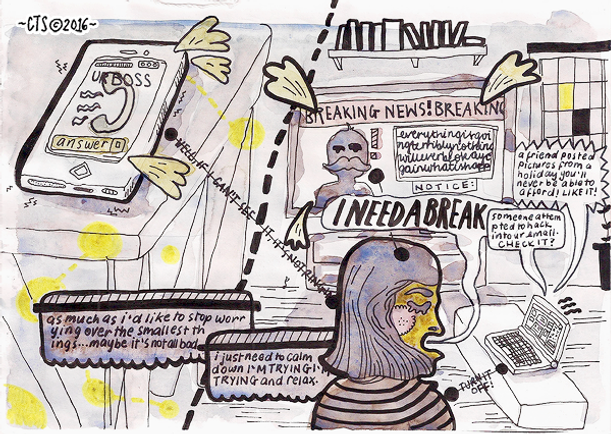 ~CTS©2016~
UR BOSS
answer
WELL IF I CAN'T SEE IT, IT'S NOT RINGING
BREAKING NEWS! BREAKING
everything is goi
ng terribly nothing
will ever be okay a
gain what is hope
NOTICE!
I NEED A BREAK
a friend posted
pictures from a
holiday you'll
never be able to
afford! LIKE IT!
someone attem
pted to hack
into ur email-
CHECK IT?
as much as i'd like to stop worr
ying over the smallest th
ings...maybe it's not all bad
i just need to calm
down I'M TRYING I'
TRYING and relax.
TURN IT
OFF!